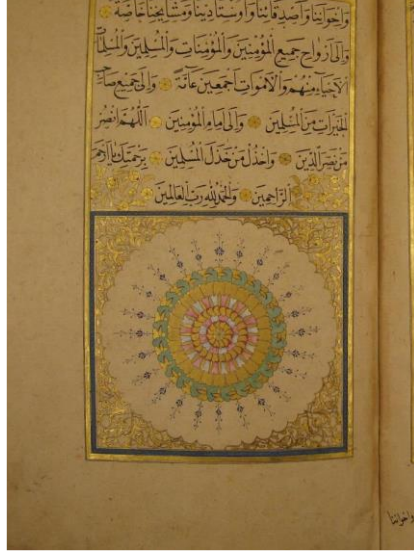 وَاِخْوَانِنَا وَاَصْدِقَائِنَا وَاُوسْتَادِينَا وَمَشَايِخِنَا خَاصَّةً
وَاِلَى اَرْوَاحِ جَمِيعِ الْمُؤْمِنِينَ وَالْمُؤْمِنَاتِ وَالْمُسْلِمِينَ وَالْمُسْلِمَاتِ
اَلْاَحْيَاءِ مِنْهُمْ وَالْاَمْوَاتِ اَجْمَعِينَ عَامَّةً وَاِلَى جَمِيعِ صَاحِبِ
الْخَيْرَاتِ مِنَ الْمُسْلِمِينَ وَاِلَى اِمَامِ الْمُؤْمِنِينَ اَللّٰهُمَّ انْصُرْ
مَنْ نَصَرَ الدِّينَ وَاخْذُلْ مَنْ خَذَلَ الْمُسْلِمِينَ بِرَحْمَتِكَ يَا اَرْحَمَ
الرَّاحِمِينَ وَالْحَمْدُ لِلّٰهِ رَبِّ الْعَالَمِينَ
واخواننا